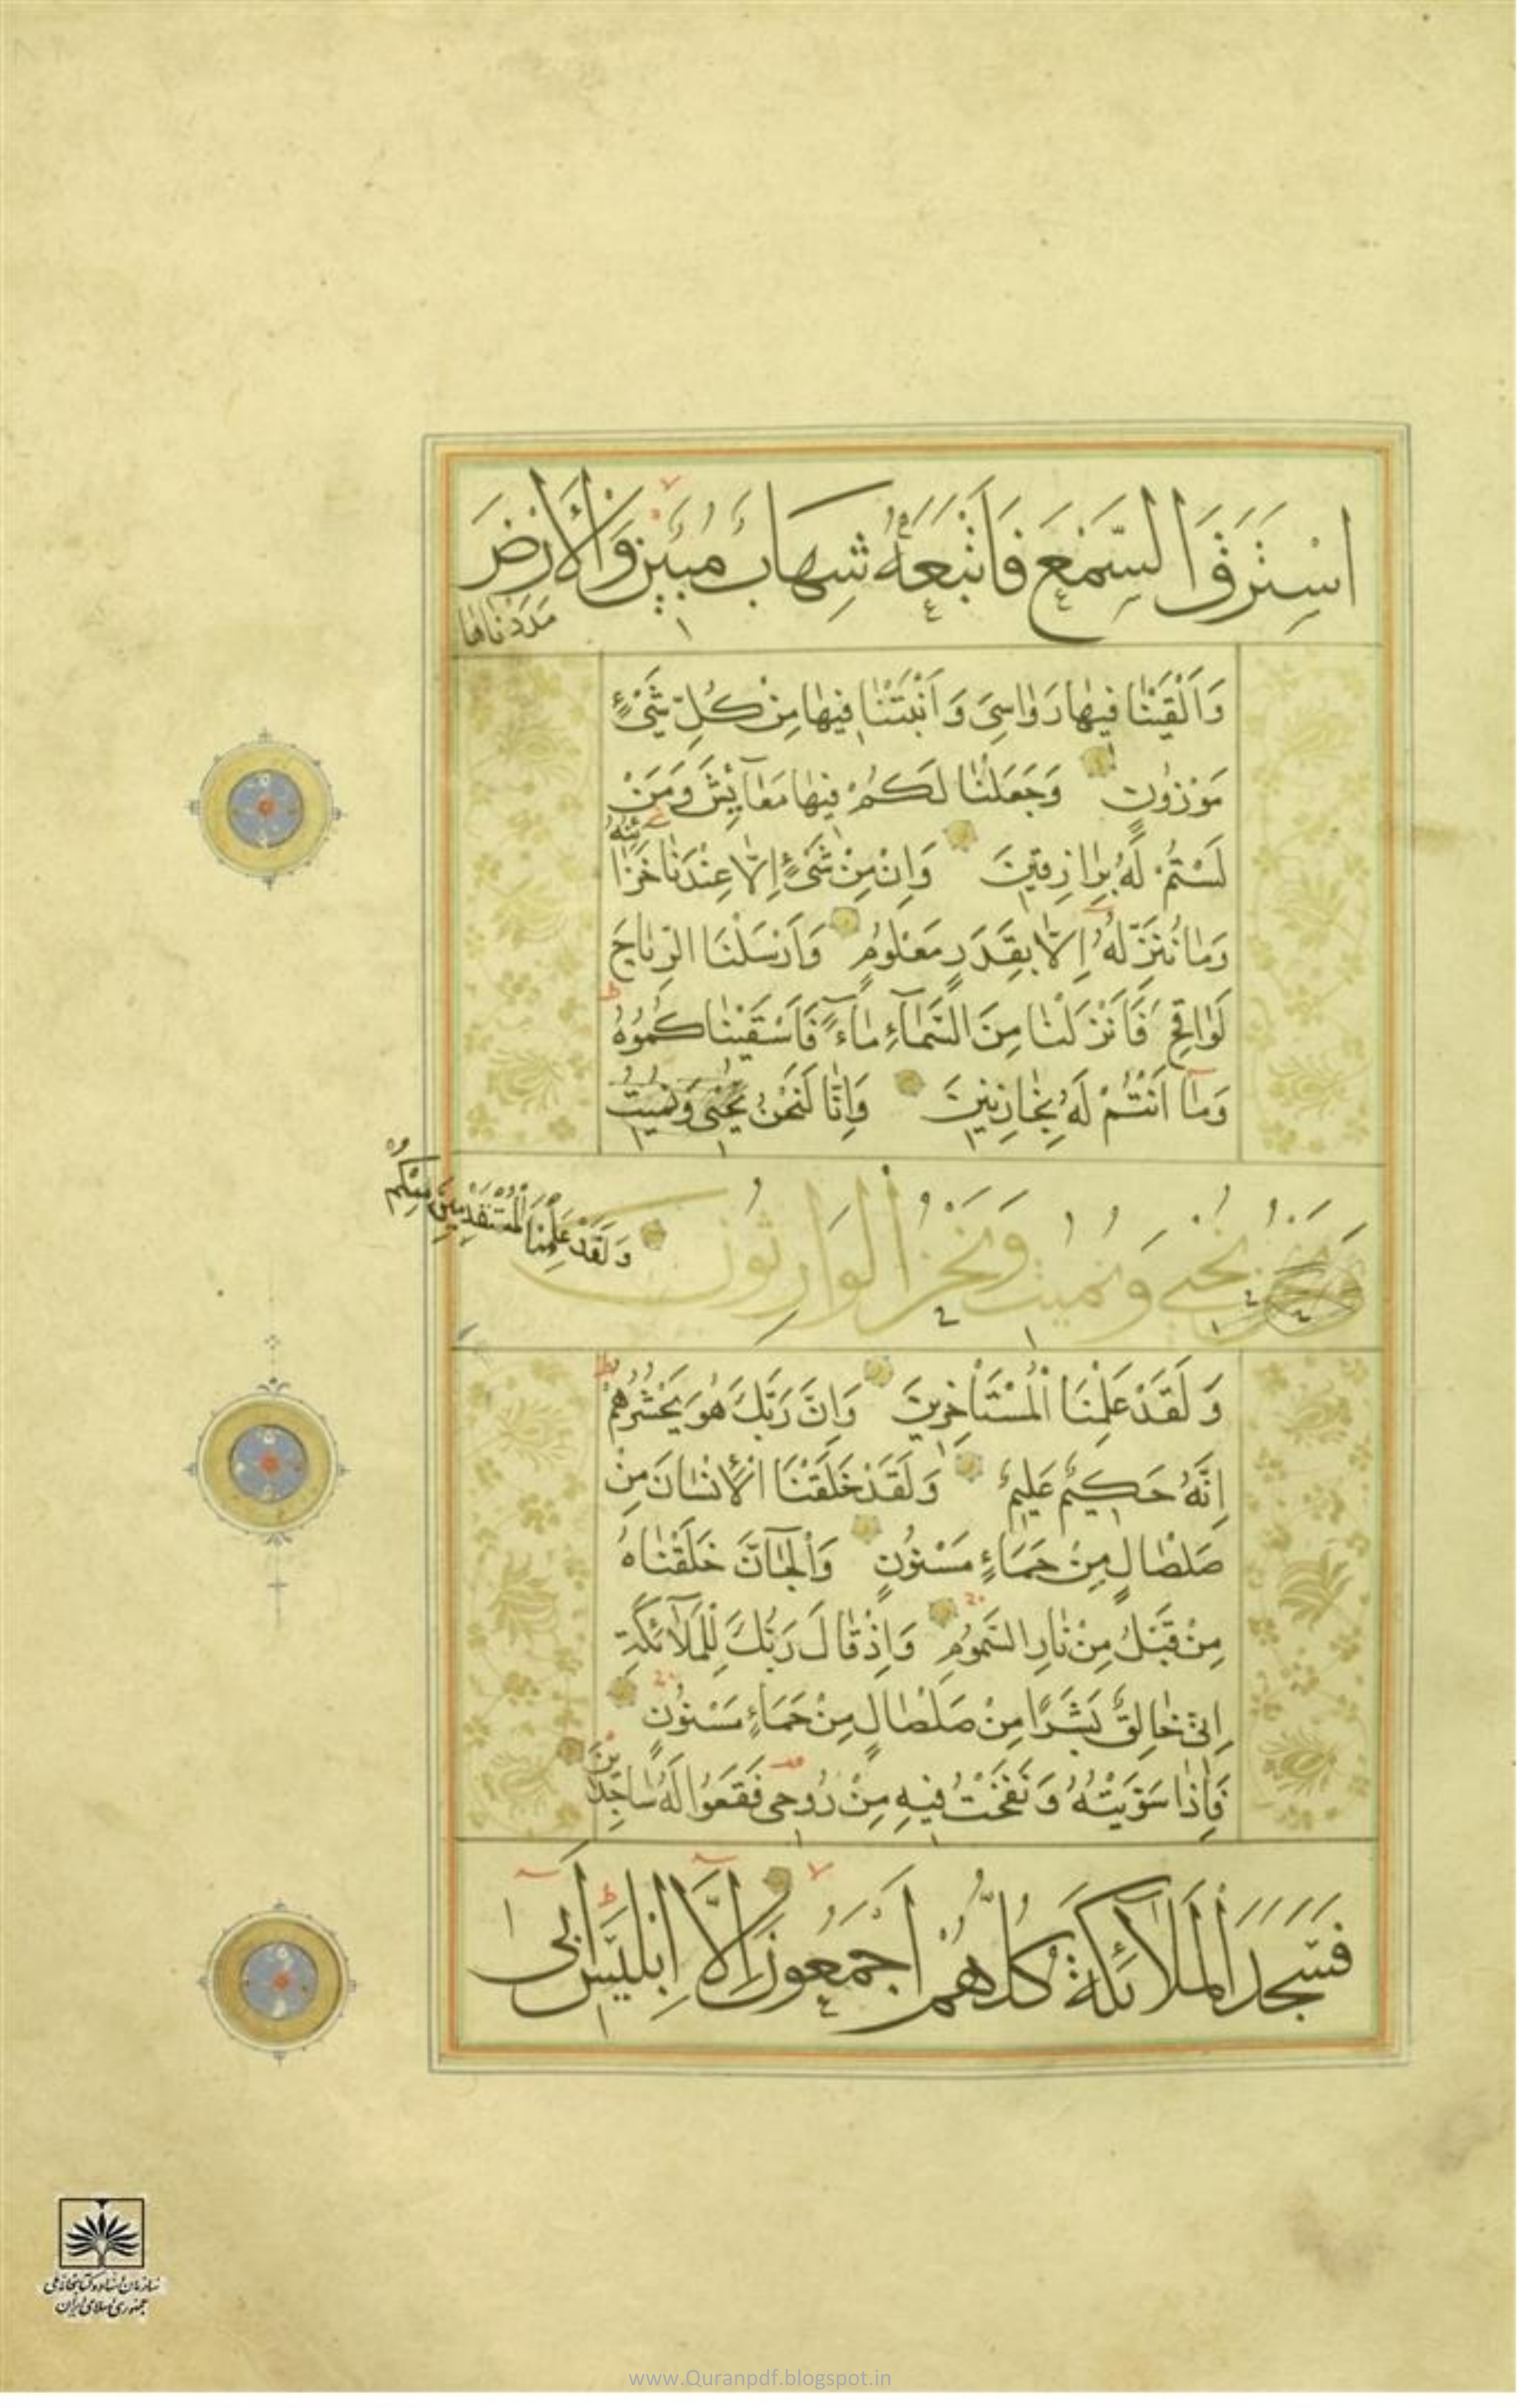 اسْتَرَقَ السَّمْعَ فَاَتْبَعَهُ شِهَابٌ مُبِينٌ وَالْأَرْضَ
مَدَدْنَاهَا
وَاَلْقَيْنَا فِيهَا رَوَاسِىَ وَاَنْبَتْنَا فِيهَا مِنْ كُلِّ شَىْءٍ
مَوْزُونٍ وَجَعَلْنَا لَكُمْ فِيهَا مَعَآئِشَ وَمَنْ
لَسْتُمْ لَهُ بِرَازِقِينَ وَاِنْ مِنْ شَىْءٍ اِلَّا عِنْدَنَا خَزَائِنُهُ
وَمَا نُنَزِّلُهُ اِلَّا بِقَدَرٍ مَعْلُومٍ وَاَرْسَلْنَا الرِّيَاحَ
لَوَاقِحَ فَاَنْزَلْنَا مِنَ السَّمَآءِ مَآءً فَاَسْقَيْنَاكُمُوهُ
وَمَآ اَنْتُمْ لَهُ بِخَازِنِينَ وَاِنَّا لَنَحْنُ نُحْيِى وَنُمِيتُ
نُحْيِي وَنُمِيتُ وَنَحْنُ الْوَارِثُونَ
وَلَقَدْ عَلِمْنَا الْمُسْتَقْدِمِينَ مِنْكُمْ
وَلَقَدْ عَلِمْنَا الْمُسْتَاْخِرِينَ وَاِنَّ رَبَّكَ هُوَ يَحْشُرُهُمْ
اِنَّهُ حَكِيمٌ عَلِيمٌ وَلَقَدْ خَلَقْنَا الْاِنْسَانَ مِنْ
صَلْصَالٍ مِنْ حَمَاءٍ مَسْنُونٍ وَالْجَآنَّ خَلَقْنَاهُ
مِنْ قَبْلُ مِنْ نَارِ السَّمُومِ وَاِذْ قَالَ رَبُّكَ لِلْمَلَآئِكَةِ
اِنِّى خَالِقٌ بَشَرًا مِنْ صَلْصَالٍ مِنْ حَمَاءٍ مَسْنُونٍ
فَاِذَا سَوَّيْتُهُ وَنَفَخْتُ فِيهِ مِنْ رُوحِى فَقَعُوا لَهُ سَاجِدِينَ
فَسَجَدَ الْمَلَآئِكَةُ كُلُّهُمْ اَجْمَعُونَ اِلَّا اِبْلِيسَ اَبَى
سازمان اسناد و کتابخانه ملی
جمهوری اسلامی ایران
www.Quranpdf.blogspot.in